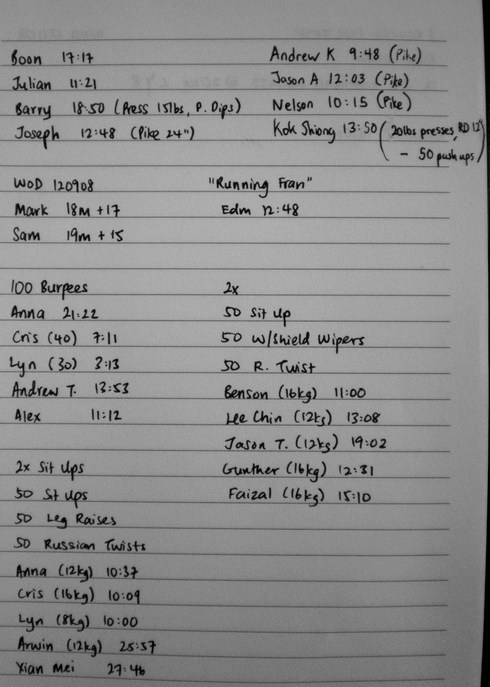 Boon 17:17
Julian 11:21
Barry 18:50 (Press 15lbs, P. Dips)
Joseph 12:48 (Pike 24")
Andrew K 9:48 (Pike)
Jason A 12:03 (Pike)
Nelson 10:15 (Pike)
Kok Shiong 13:50 (20lbs presses, RD 12"
- 50 push ups)
WOD 120908
Mark 18m +17
Sam 19m + 15
"Running Fran"
Edm 12:48
100 Burpees
Anna 21:22
Cris (40) 7:11
Lyn (30) 3:13
Andrew T. 13:53
Alex 11:12
2x
50 Sit Up
50 W/Shield Wipers
50 R. Twist
Benson (16kg) 11:00
Lee Chin (12kg) 13:08
Jason T. (12kg) 19:02
Gunther (16kg) 12:31
Faizal (16kg) 15:10
2x Sit Ups
50 Sit Ups
50 Leg Raises
50 Russian Twists
Anna (12kg) 10:37
Cris (16kg) 10:09
Lyn (8kg) 10:00
Arwin (12kg) 25:57
Xian Mei 27:46